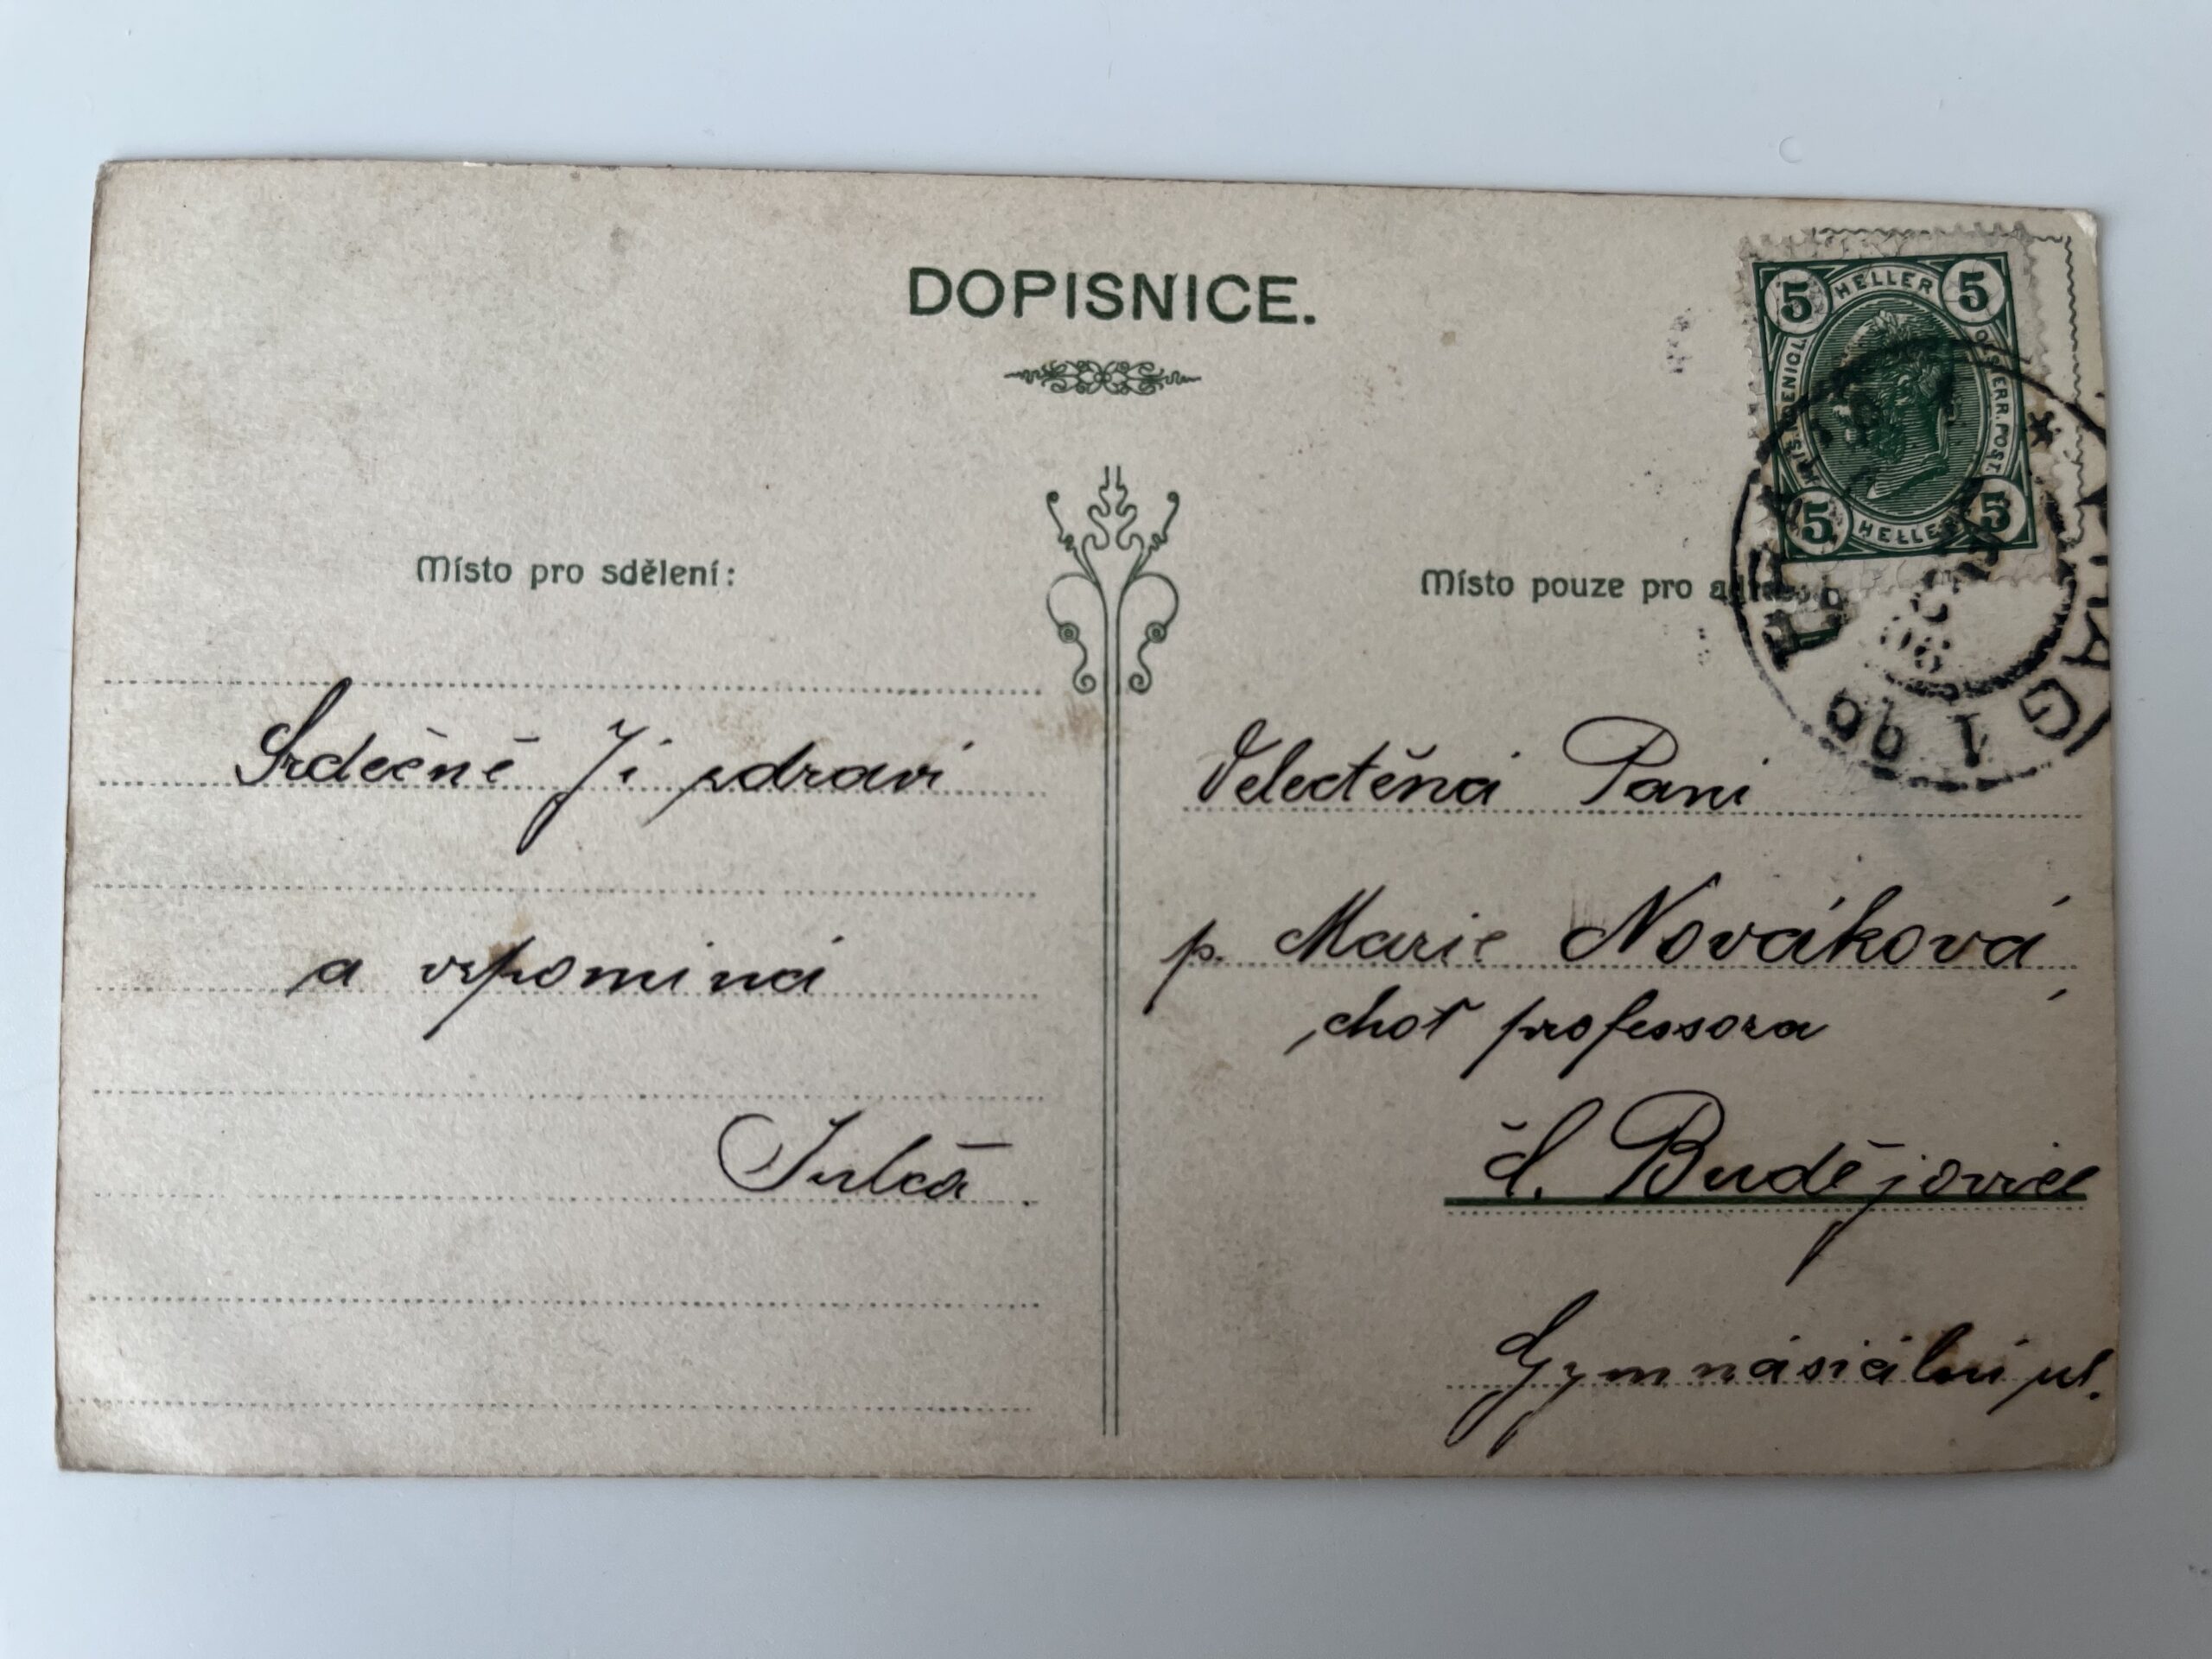 DOPISNICE.
5 HELLER 5
KAIS. KOENIGL. OESTERR. POST.
5 HELLER 5
PRAG 1
Místo pro sdělení:
Srdečně Ji zdraví
a vzpomíná
Místo pouze pro
Velectěná Paní
p. Marie Nováková,
choť professora
Č. Budějovice
Gymnásiální ul.